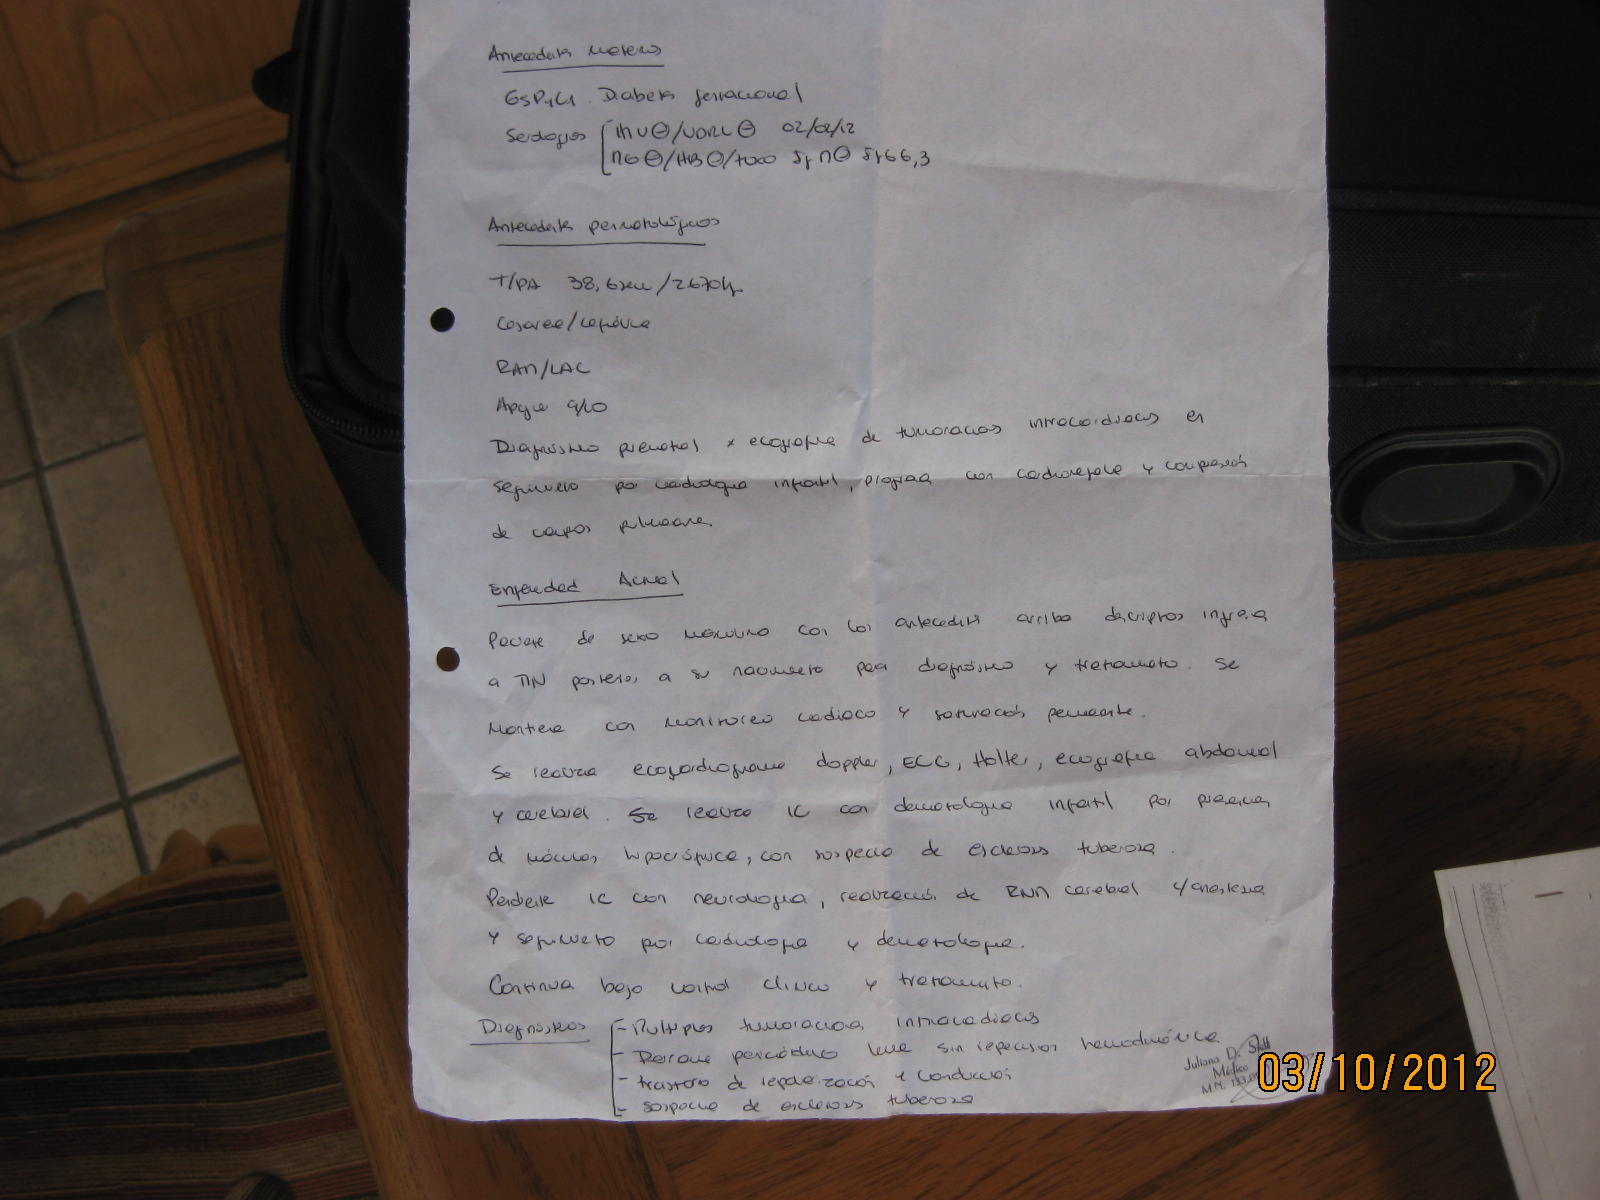 Antecedentes Maternos
G5P4C1. Diabetes gestacional
Serologías HIV ⊖/VDRL ⊖ 02/02/12
⊖/HB ⊖/toxo ⊖ 66,3
Antecedentes perinatológicos
T/PA 38,6sem/2670g
Cesárea/cefálica
RAN/LAC
Apgar 9/10
Diagnóstico prenatal x ecografía de tumoraciones intracardiacas en
seguimiento por cardiología infantil, progresa con cardiomegalia y compresión
de campos pulmonares.
Enfermedad Actual
Paciente de sexo masculino con los antecedentes arriba descriptos ingresa
a posterior a su nacimiento para diagnóstico y tratamiento. Se
mantiene con monitoreo cardiaco y saturación permanente.
Se realiza ecocardiograma doppler, ECG, Holter, ecografía abdominal
y cerebral. Se realiza IC con dermatología infantil por presencia
de máculas hipocrómicas, con sospecha de esclerosis tuberosa.
Pendiente IC con neurología, realización de RNM cerebral c/anestesia
y seguimiento por cardiología y dermatología.
Continua bajo control clínico y tratamiento.
Diagnósticos - Múltiples tumoraciones intracardiacas
- Derrame pericárdico leve sin repercusión hemodinámica
- trastorno de repolarización y conducción
- sospecha de esclerosis tuberosa
Juliana D.
Médico
M.N.
03/10/2012